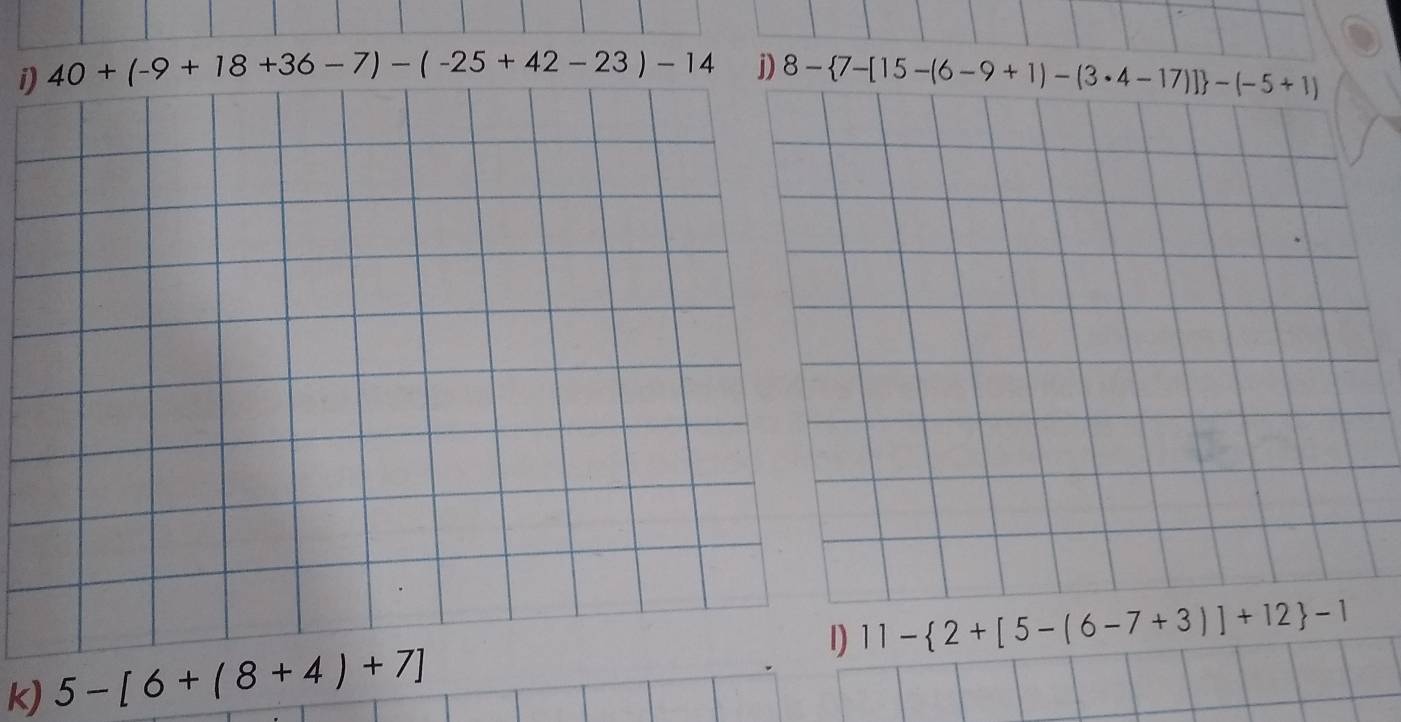 i) 40 + (-9 + 18 +36 - 7) - ( -25 + 42 - 23 ) - 14
j) 8 - {7-[15 -(6 - 9 + 1) - (3•4 - 17)]} - (- 5 + 1)
k) 5 - [ 6 + ( 8 + 4 ) + 7]
l) 11 - { 2 + [ 5 - ( 6 - 7 + 3 ) ] + 12 } - 1